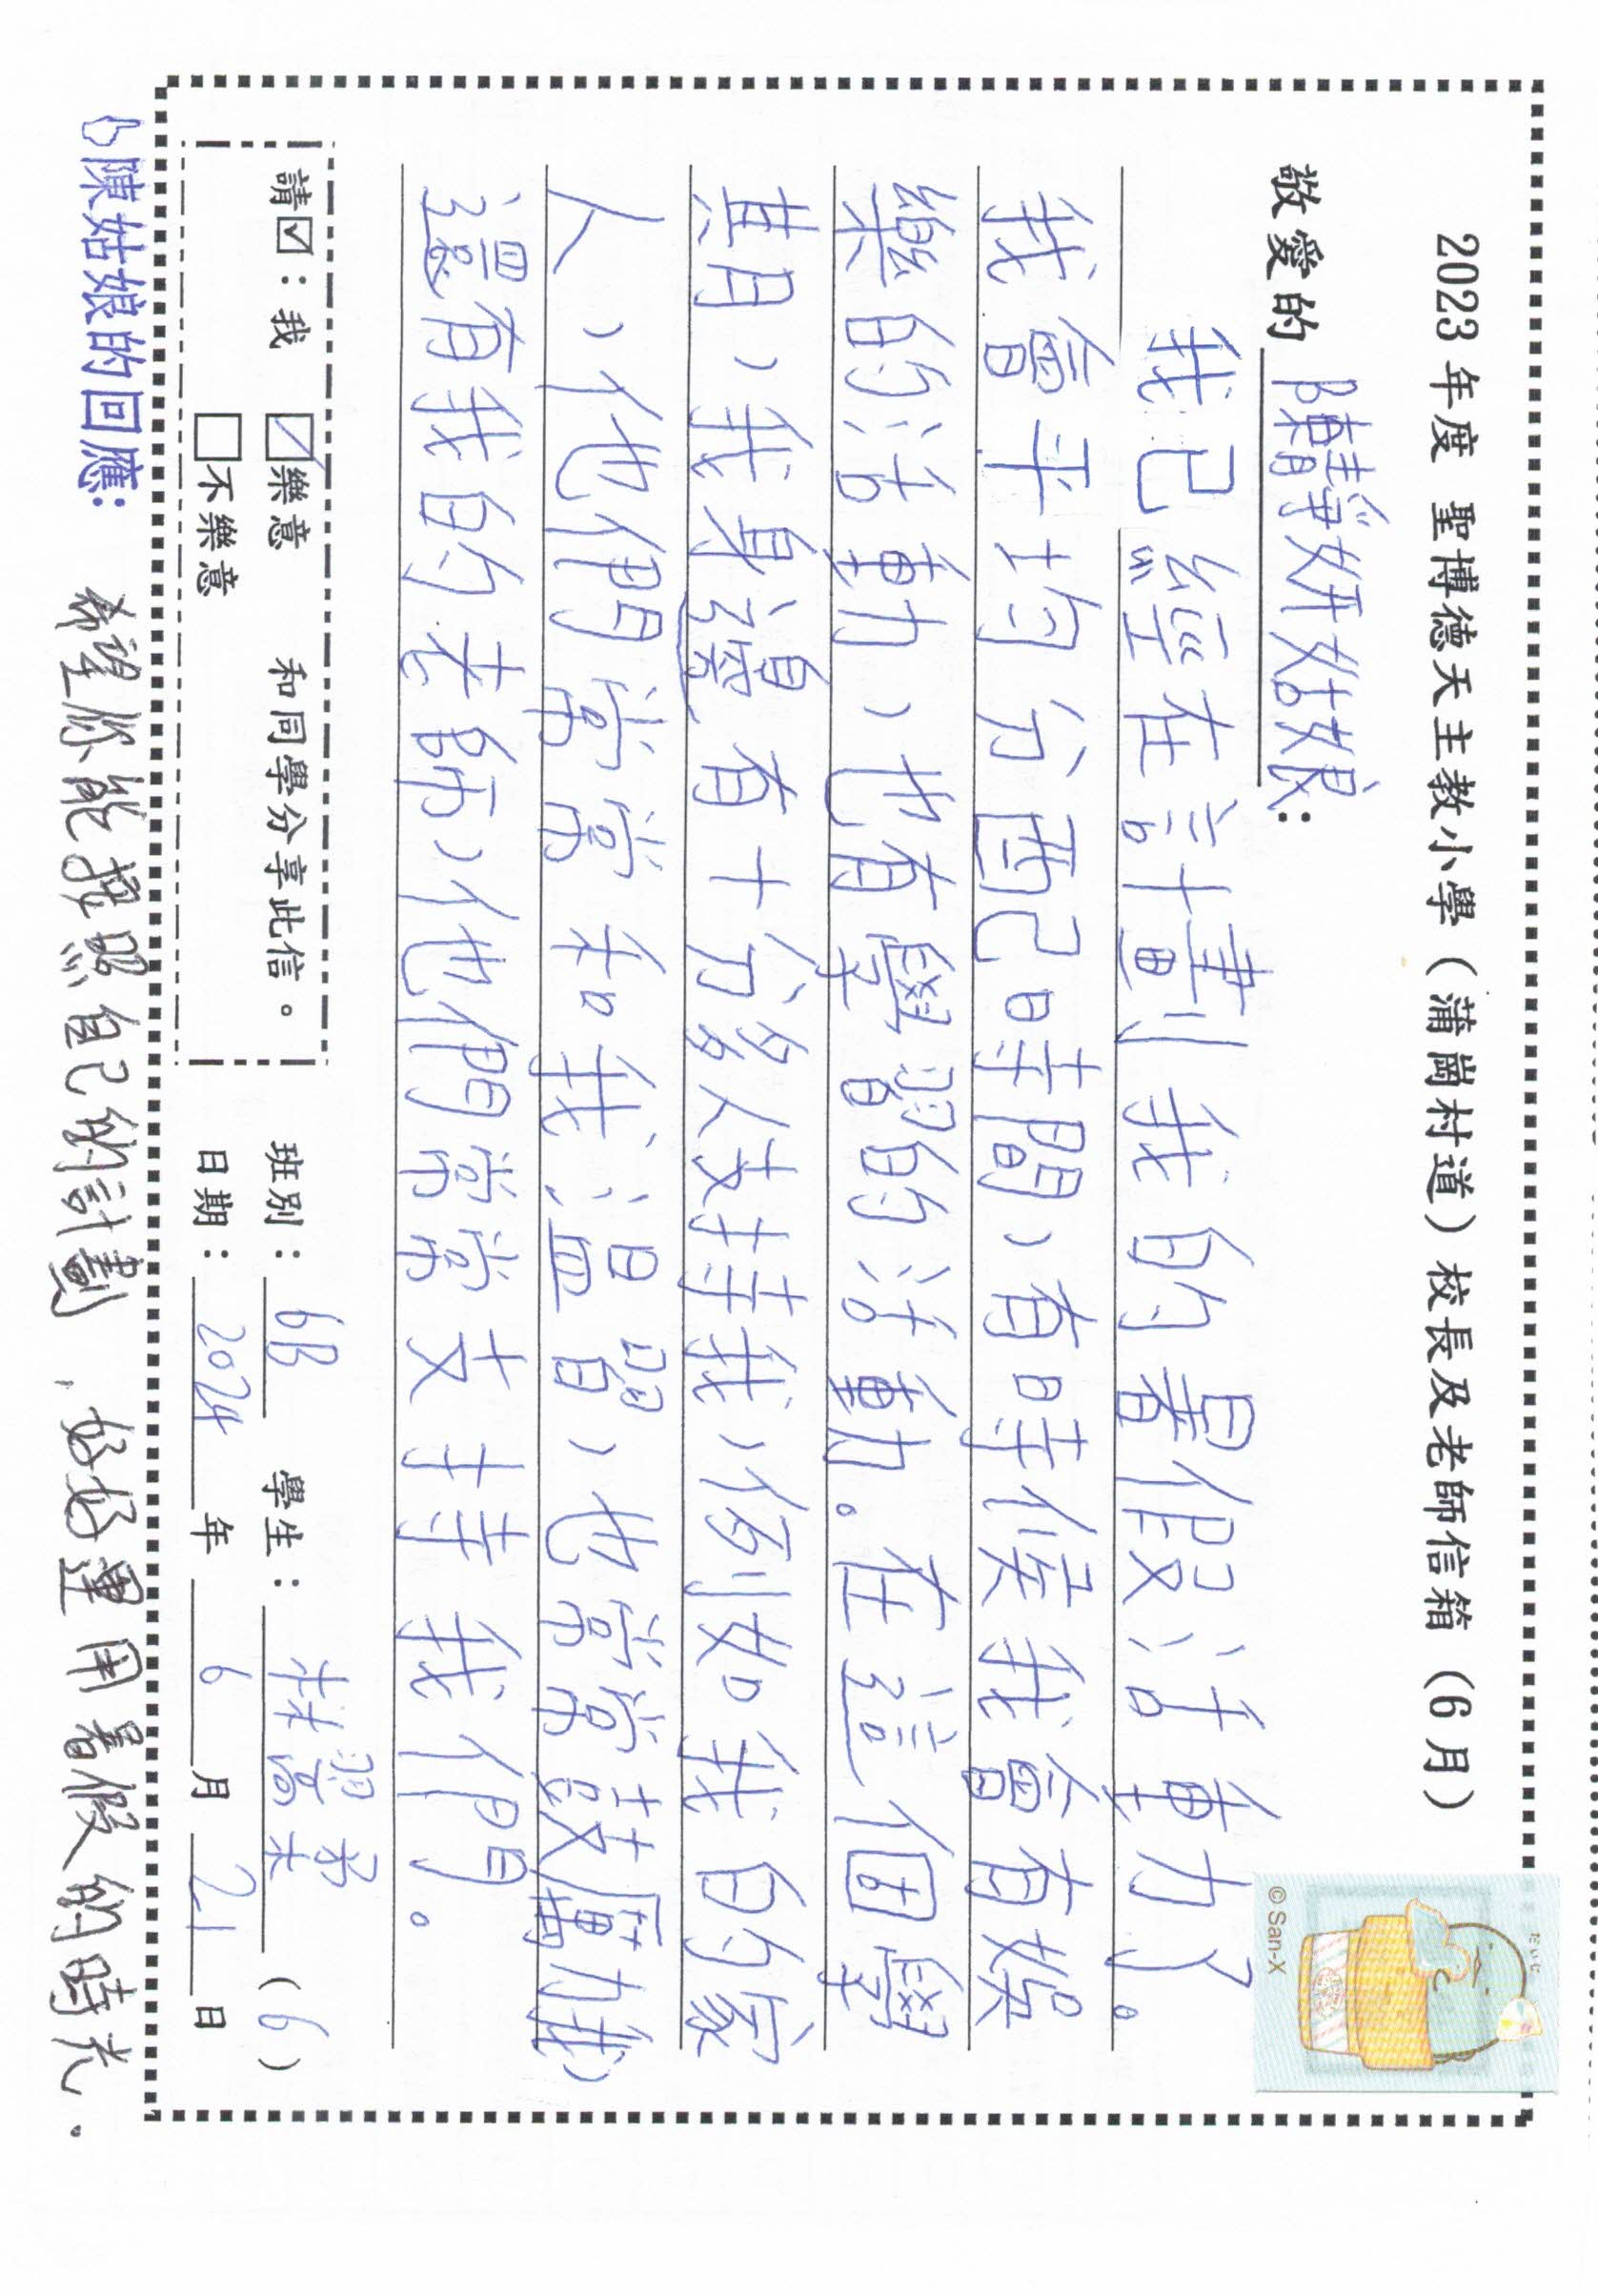 2023 年度 聖博德天主教小學（蒲崗村道）校長及老師信箱（6 月）
敬愛的 陳靜妍姑娘：
我已經在計劃我的暑假活動了。
我會平均分配時間，有時候我會有娛
樂的活動，也有學習的活動。在這個學
期，我身邊有十分多人支持我，例如我的家
人，他們常常和我溫習，也常常鼓勵我，
還有我的老師，他們常常支持我們。
請☑：我 ☑樂意 和同學分享此信。
□不樂意
班別：6B 學生：林 (6)
日期：2024 年 6 月 21 日
陳姑娘的回應：希望你能按照自己的計劃，好好運用暑假的時光.
だいじ
© San-X